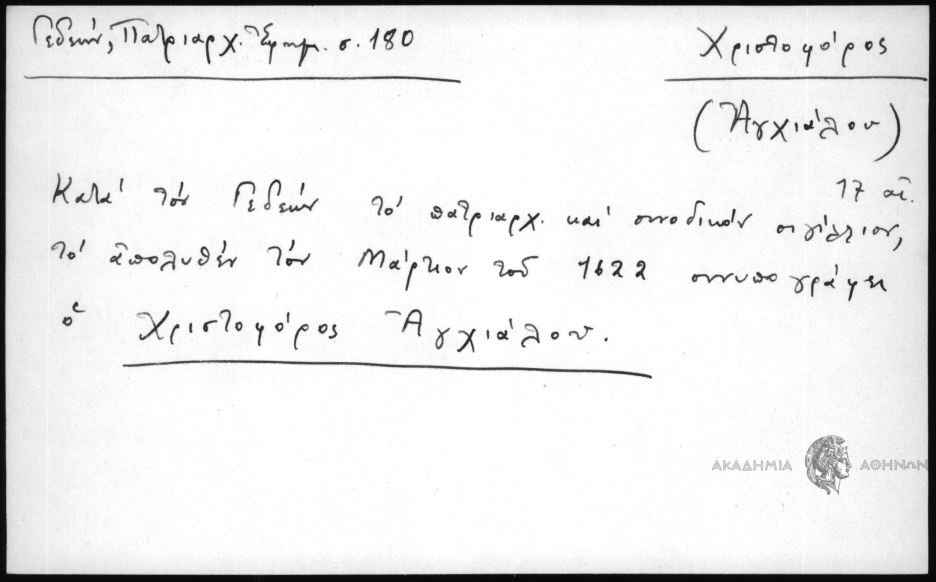 Γεδεών, Πατριαρχ. Ἐφημ. σ. 180
Χριστοφόρος
(Ἀγχιάλου)
17 αἰ.
Κατά τόν Γεδεών τό πατριαρχ. καί συνοδικόν σιγίλλιον,
τό ἀπολυθέν τόν Μάρτιον τοῦ 1622 συνυπογράφει
ὁ Χριστοφόρος Ἀγχιάλου.
ΑΚΑΔΗΜΙΑ ΑΘΗΝΩΝ